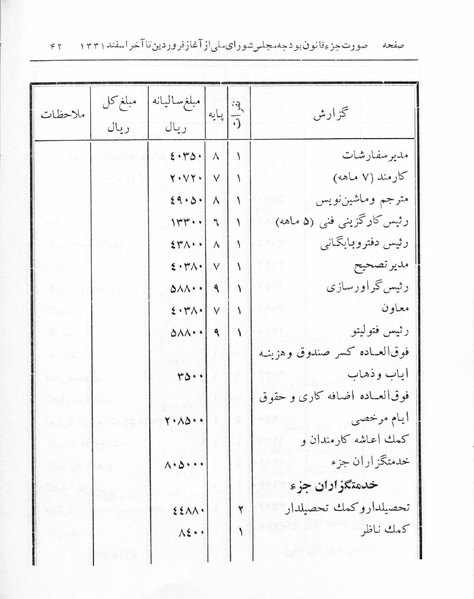 صفحه صورت جزء قانون بودجه مجلس شورای ملی از آغاز فروردین تا آخر اسفند ۱۳۳۱ ۴۲
گزارش نفرات پایه مبلغ سالیانه ریال مبلغ کل ریال ملاحظات
مدیر سفارشات ۱ ۸ ۴۰۳۵۰
کارمند (۷ ماهه) ۱ ۷ ۲۰۷۲۰
مترجم و ماشین‌نویس ۱ ۸ ۴۹۰۵۰
رئیس کارگزینی فنی (۵ ماهه) ۱ ۶ ۱۳۳۰۰
رئیس دفتر و بایگانی ۱ ۸ ۴۳۸۰۰
مدیر تصحیح ۱ ۷ ۴۰۳۸۰
رئیس گراورسازی ۱ ۹ ۵۸۸۰۰
معاون ۱ ۷ ۴۰۳۸۰
رئیس فتولیتو ۱ ۹ ۵۸۸۰۰
فوق‌العاده کسر صندوق و هزینه
ایاب و ذهاب ۳۵۰۰
فوق‌العاده اضافه کاری و حقوق
ایام مرخصی ۲۰۸۵۰۰
کمک اعاشه کارمندان و
خدمتگزاران جزء ۸۰۵۰۰۰
خدمتگزاران جزء
تحصیلدار و کمک تحصیلدار ۲ ۴۴۸۸۰
کمک ناظر ۱ ۸۴۰۰